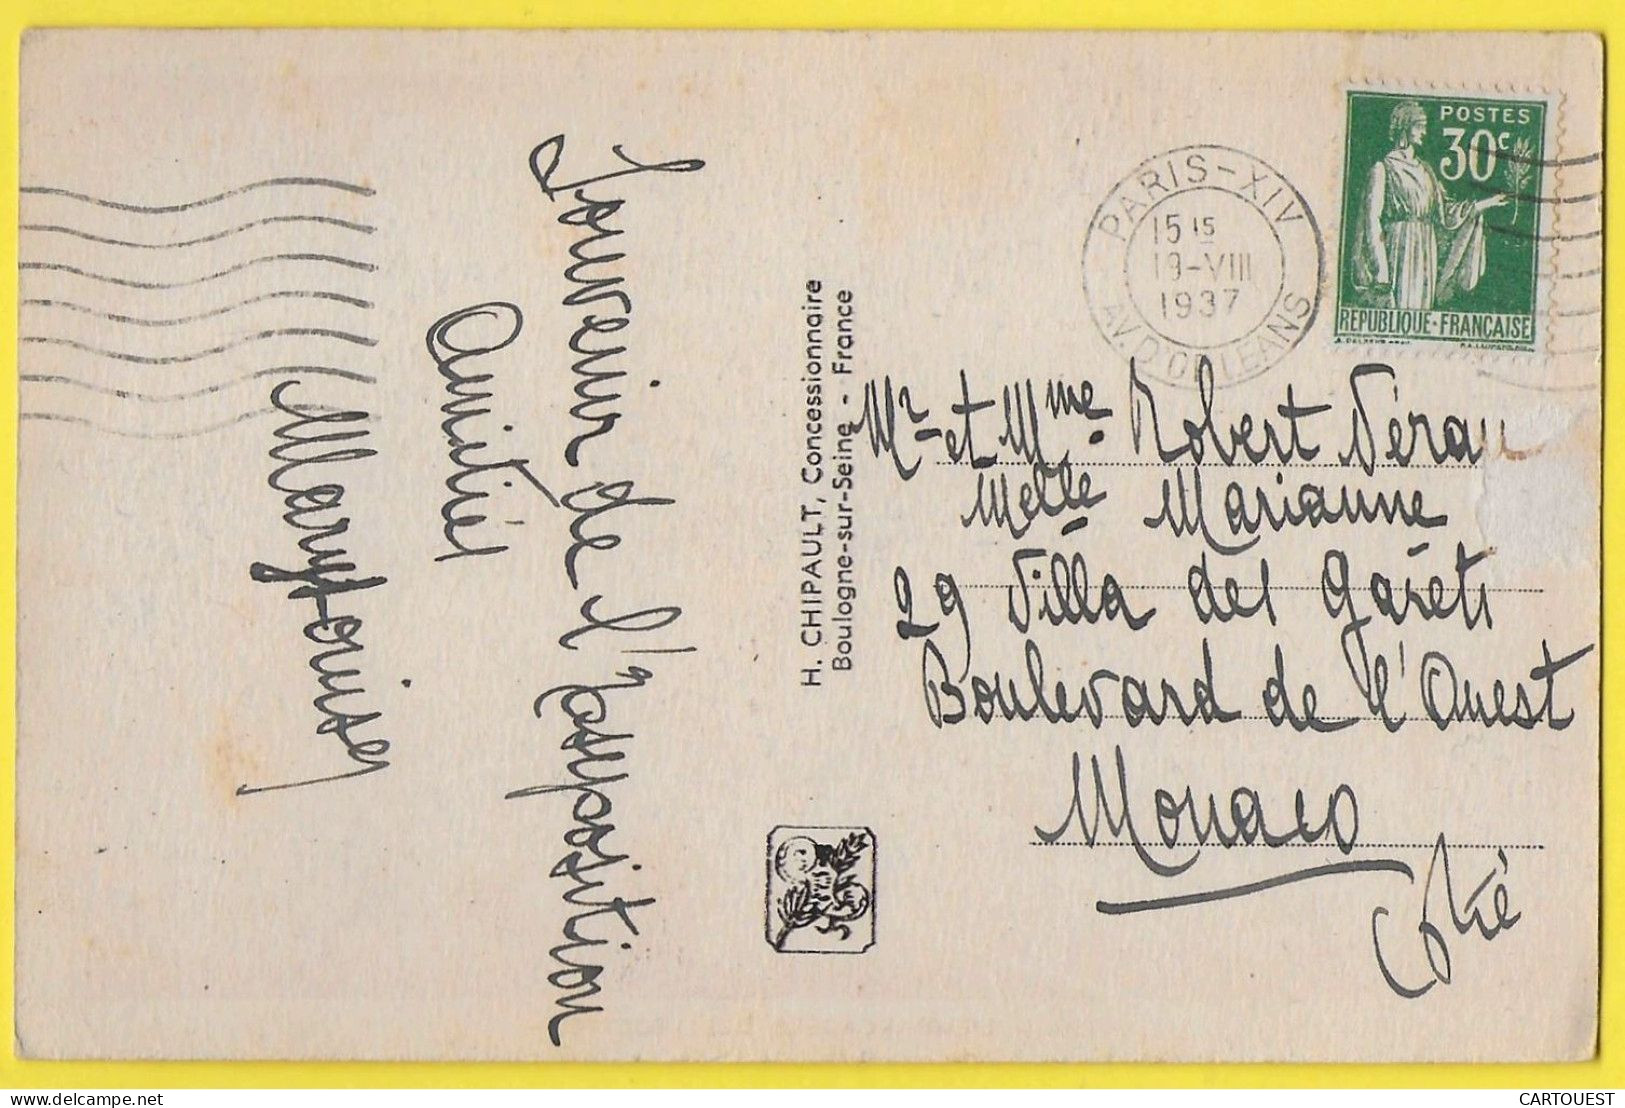 Souvenir de l'Exposition
Amitiés
H. CHIPAULT, Concessionnaire
Boulogne-sur-Seine - France
PARIS-XIV
15 15
19-VIII
1937
AV. D'ORLEANS
POSTES
30c
REPUBLIQUE-FRANÇAISE
Mr et Mme Robert Véran
Melle Marianne
29 Villa des Gàrets
Boulevard de l'Ouest
Monaco
Pté
CARTOUEST